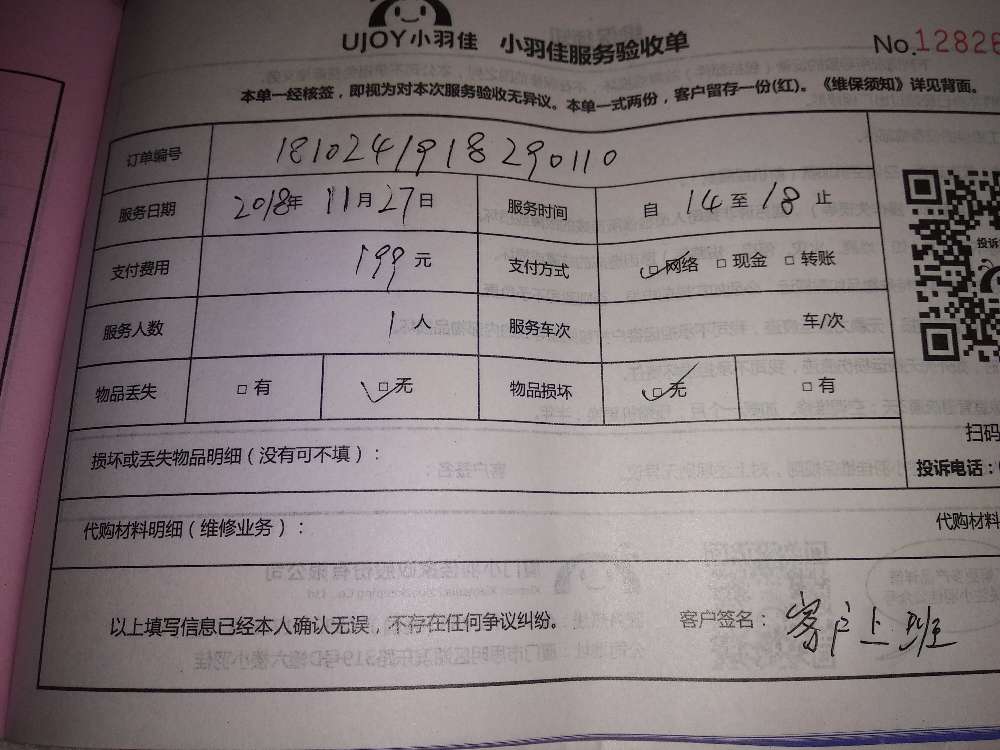 UJOY小羽佳 小羽佳服务验收单
No.12826
本单一经核签，即视为对本次服务验收无异议。本单一式两份，客户留存一份(红)。《维保须知》详见背面。
订单编号 1810241918290110
服务日期 2018年 11月27日 服务时间 自 14 至 18 止
支付费用 199元 支付方式 □网络 □现金 □转账
服务人数 1人 服务车次 车/次
物品丢失 □有 □无 物品损坏 □无 □有
投诉
扫码
投诉电话：
损坏或丢失物品明细（没有可不填）：
代购材料明细（维修业务）： 代购材料
以上填写信息已经本人确认无误，不存在任何争议纠纷。 客户签名：客户上班